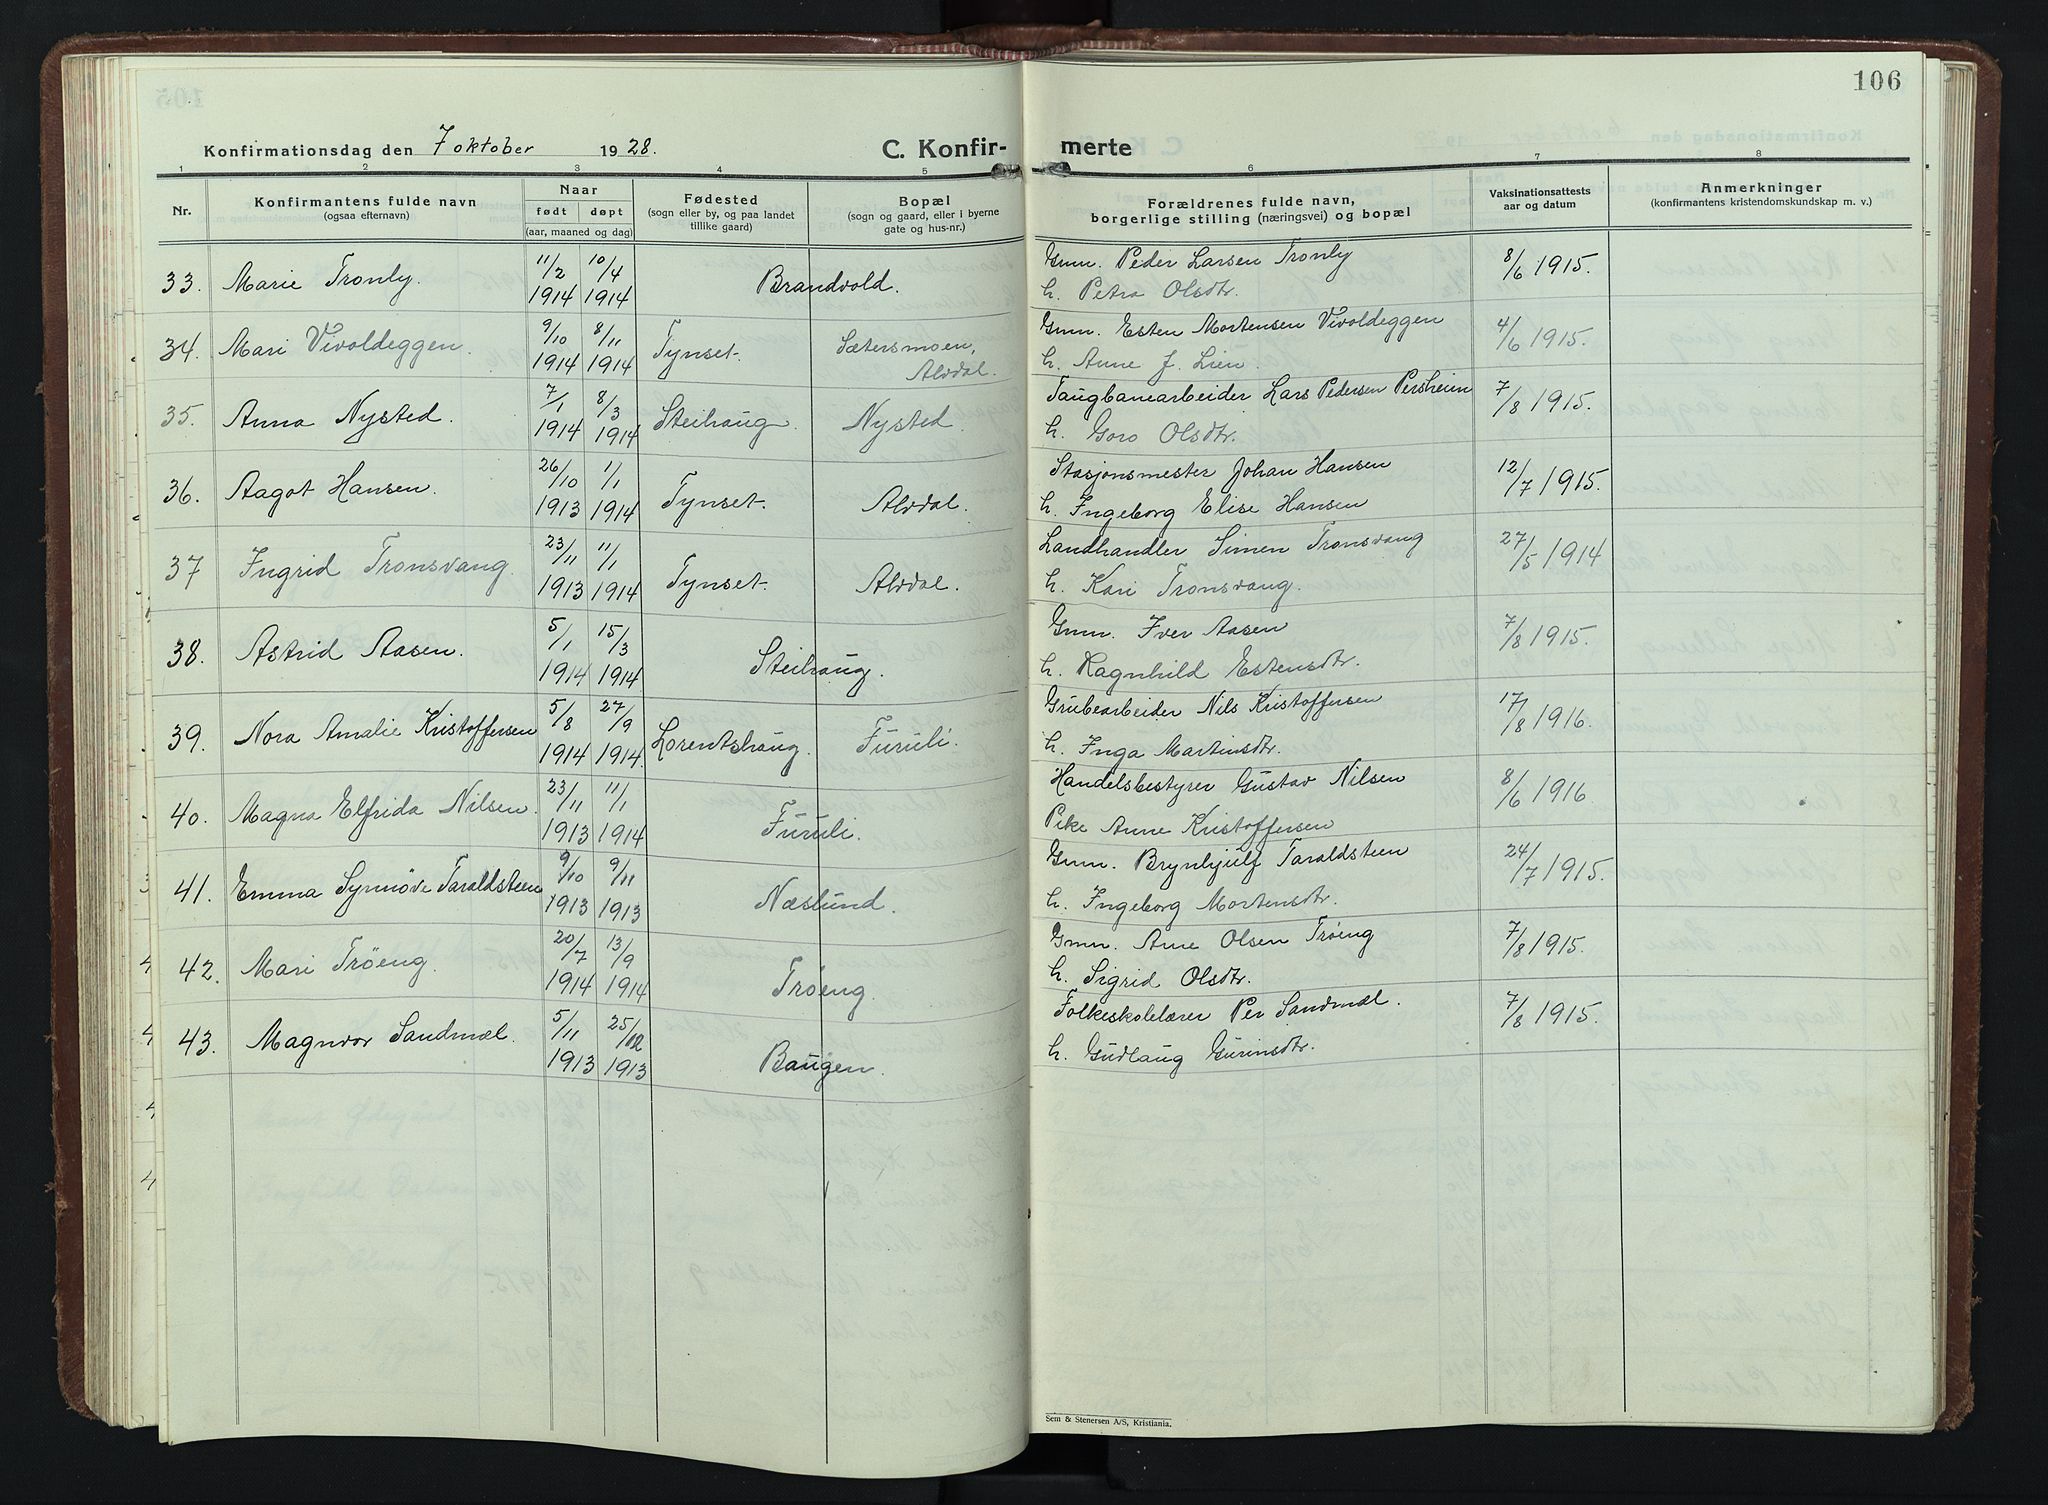 106
Konfirmationsdag den 7 oktober 1928.
C. Konfir-
merte
1 2 3 4 5 6 7 8
Nr.
Konfirmantens fulde navn
(ogsaa efternavn)
Naar
født døpt
(aar, maaned og dag)
Fødested
(sogn eller by, og paa landet
tillike gaard)
Bopæl
(sogn og gaard, eller i byerne
gate og hus-nr.)
Forældrenes fulde navn,
borgerlige stilling (næringsvei) og bopæl
Vaksinationsattests
aar og datum
Anmerkninger
(konfirmantens kristendomskundskap m. v.)
33. Marie Tronly. 11/2 1914 10/4 1914 Brandvold. Gmn. Peder Larsen Tronly 8/6 1915.
h. Petra Olsdtr.
34. Mari Vivoldeggen. 9/10 1914 8/11 1914 Tynset. Sætersmoen, Alvdal. Gmn. Esten Mortensen Vivoldeggen 4/6 1915.
h. Anne J. Lien.
35. Anna Nysted. 7/1 1914 8/3 1914 Steihaug. Nysted. Taugbanearbeider Lars Pedersen Persheim 7/8 1915.
h. Goro Olsdtr.
36. Aagot Hansen. 26/10 1913 1/1 1914 Tynset. Alvdal. Stasjonsmester Johan Hansen 12/7 1915.
h. Ingeborg Elise Hansen
37 Ingrid Tronsvang. 23/11 1913 11/1 1914 Tynset. Alvdal. Landhandler Simen Tronsvang 27/5 1914
h. Kari Tronsvang.
38. Astrid Aasen. 5/1 1914 15/3 1914 Steihaug. Gmn. Iver Aasen 7/8 1915.
h. Ragnhild Estensdtr.
39. Nora Amalie Kristoffersen 5/8 1914 27/9 1914. Lorentshaug. Furuli. Grubearbeider Nils Kristoffersen 17/8 1916.
h. Inga Martinsdtr.
40. Magna Elfrida Nilsen. 23/11 1913 11/1 1914 Furuli. Handelsbestyrer Gustav Nilsen 8/6 1916
Pike Anne Kristoffersen
41. Emma Synnøve Taraldsteen 9/10 1913 9/11 1913 Næslund. Gmn. Brynhjulf Taraldsteen 24/7 1915.
h. Ingeborg Mortensdtr.
42. Mari Trøeng. 20/7 1914 13/9 1914 Trøeng. Gmn. Arne Olsen Trøeng 7/8 1915.
h. Sigrid Olsdtr.
43. Magnvor Sandmæl. 5/11 1913 25/12 1913 Baugen. Folkeskolelærer Per Sandmæl. 7/8 1915.
h. Gudlaug Guninsdtr.
Sem & Stenersen A/S, Kristiania.